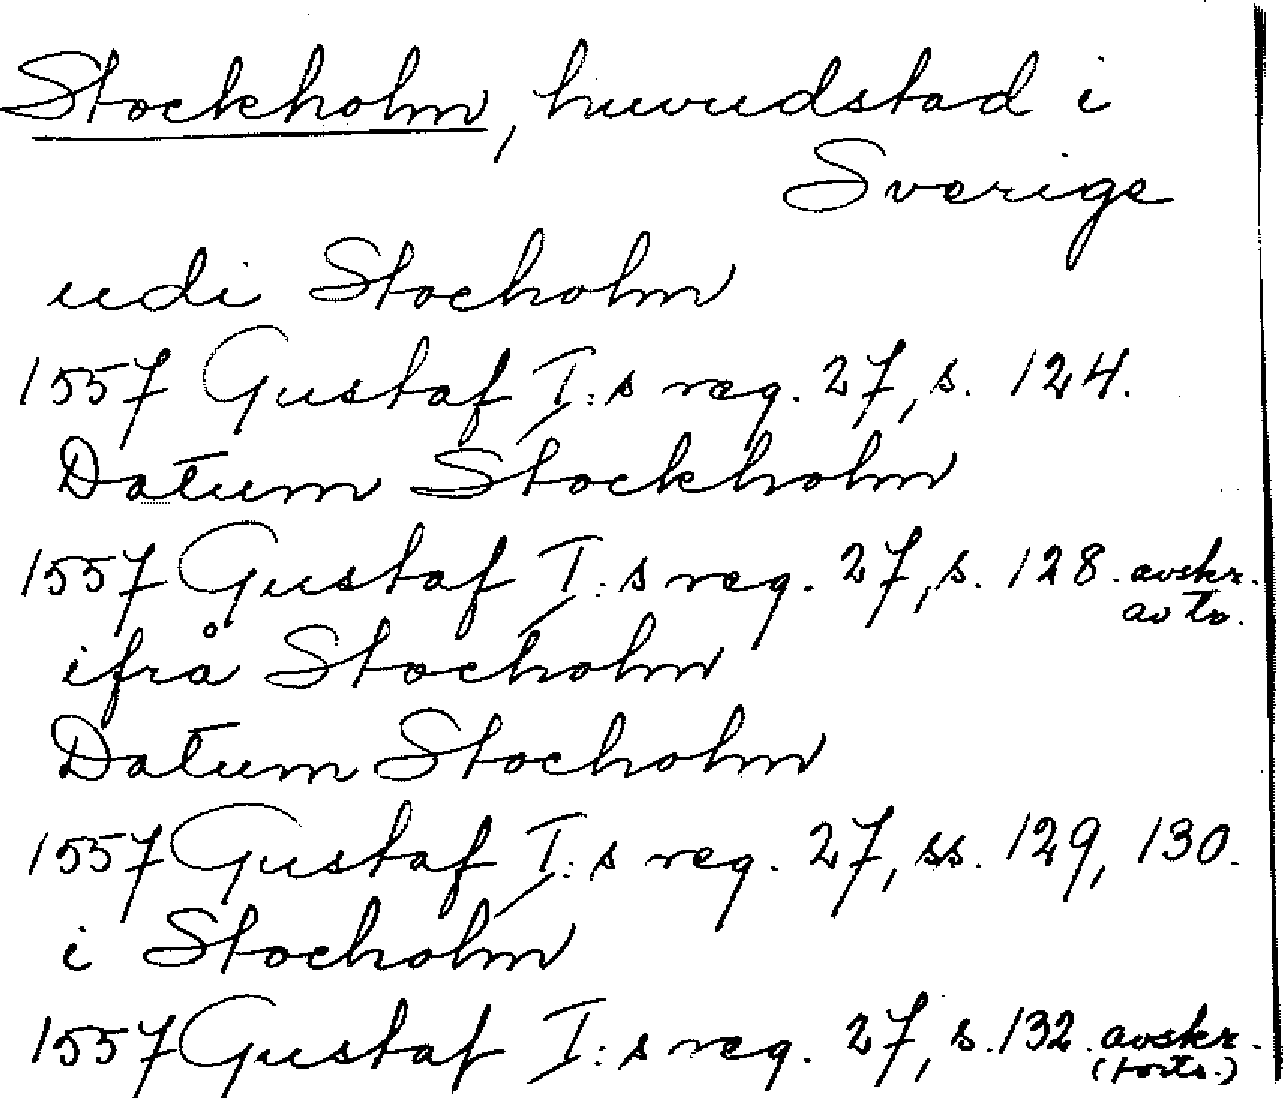 Stockholm, huvudstad i
Sverige
udi Stocholm
1557 Gustaf I:s reg. 27, s. 124.
Datum Stockholm
1557 Gustaf I:s reg. 27, s. 128. avskr.
ifrå Stocholm
Datum Stocholm
1557 Gustaf I:s reg. 27, ss. 129, 130.
i Stocholm
1557 Gustaf I:s reg. 27, s. 132. avskr.